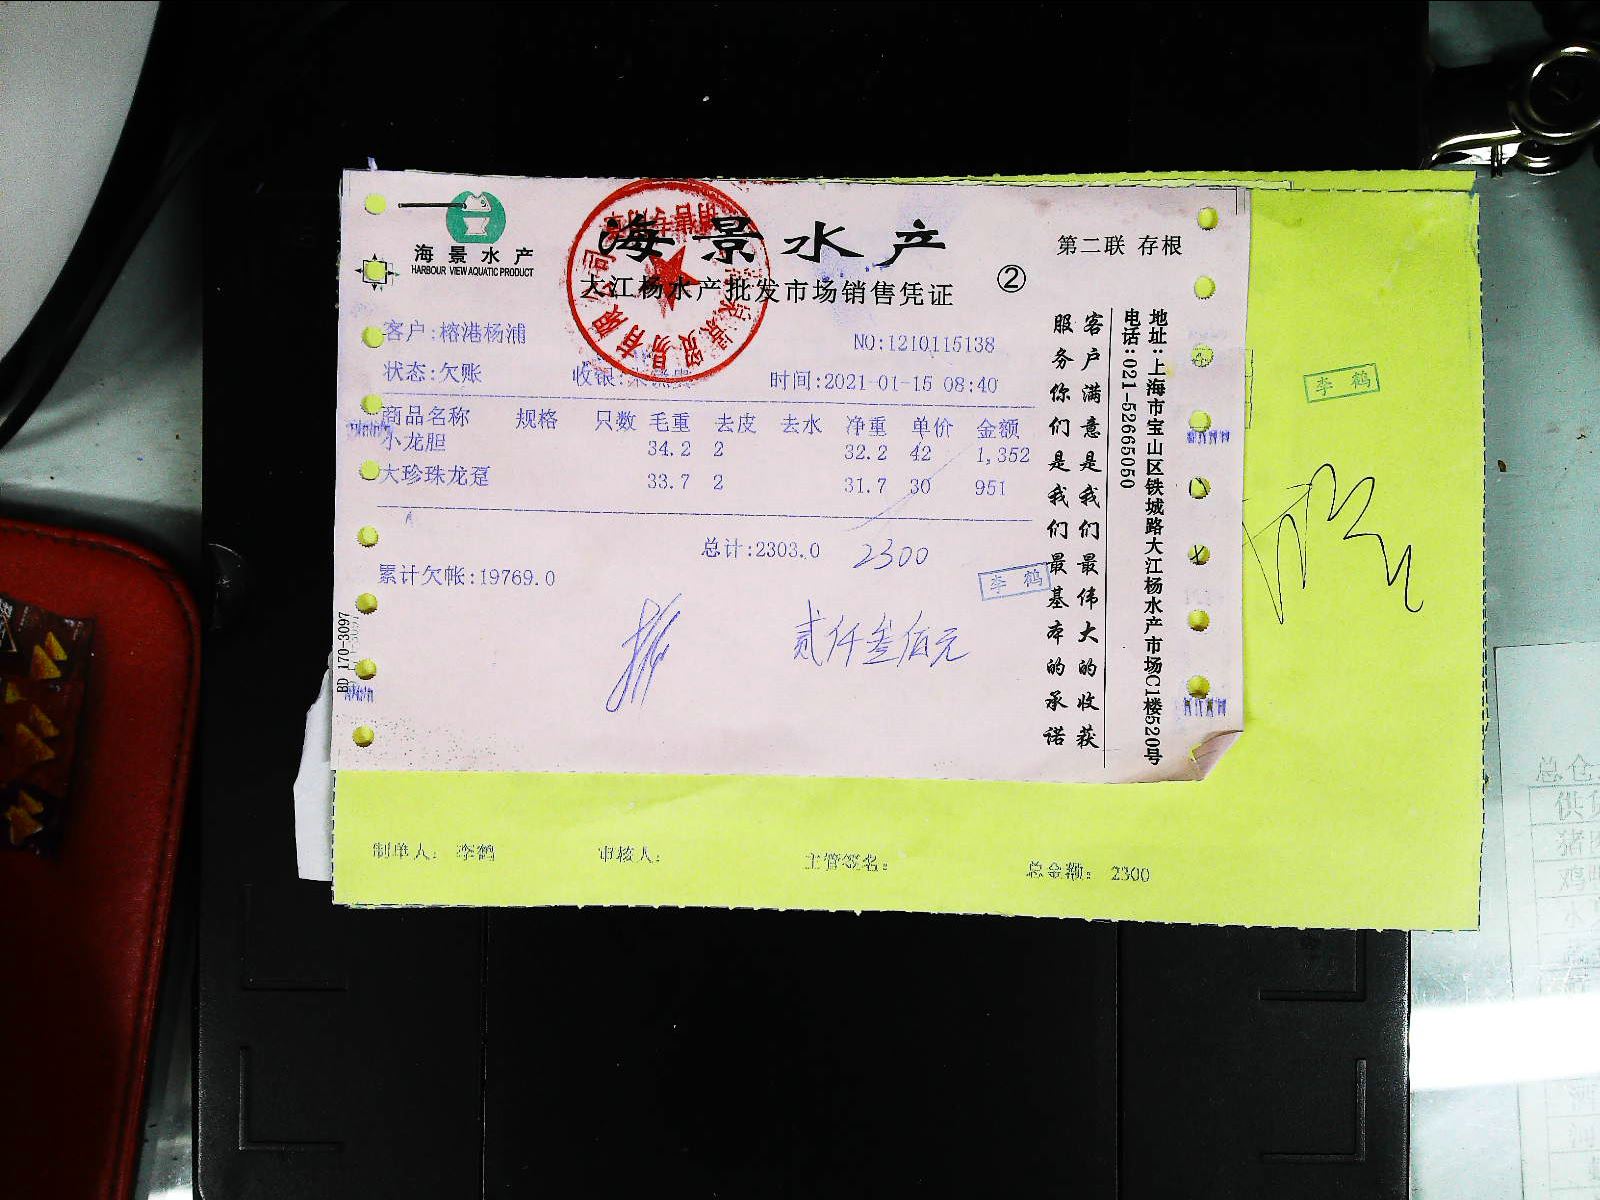 海景水产
HARBOUR VIEW AQUATIC PRODUCT
海景水产
大江杨水产批发市场销售凭证
②
第二联 存根
客户:榕港杨浦
NO:1210115138
状态:欠账
收银:
时间:2021-01-15 08:40
商品名称 规格 只数 毛重 去皮 去水 净重 单价 金额
小龙胆 34.2 2 32.2 42 1,352
大珍珠龙趸 33.7 2 31.7 30 951
总计:2303.0
2300
累计欠帐:19769.0
李鹤
贰仟叁佰元
客户满意是我们最伟大的收获
服务你们是我们最基本的承诺
地址:上海市宝山区铁城路大江杨水产市场C1楼520号
电话:021-52665050
BD 170-3097
李鹤
制单人: 李鹤
审核人:
主管签名:
总金额: 2300
总仓